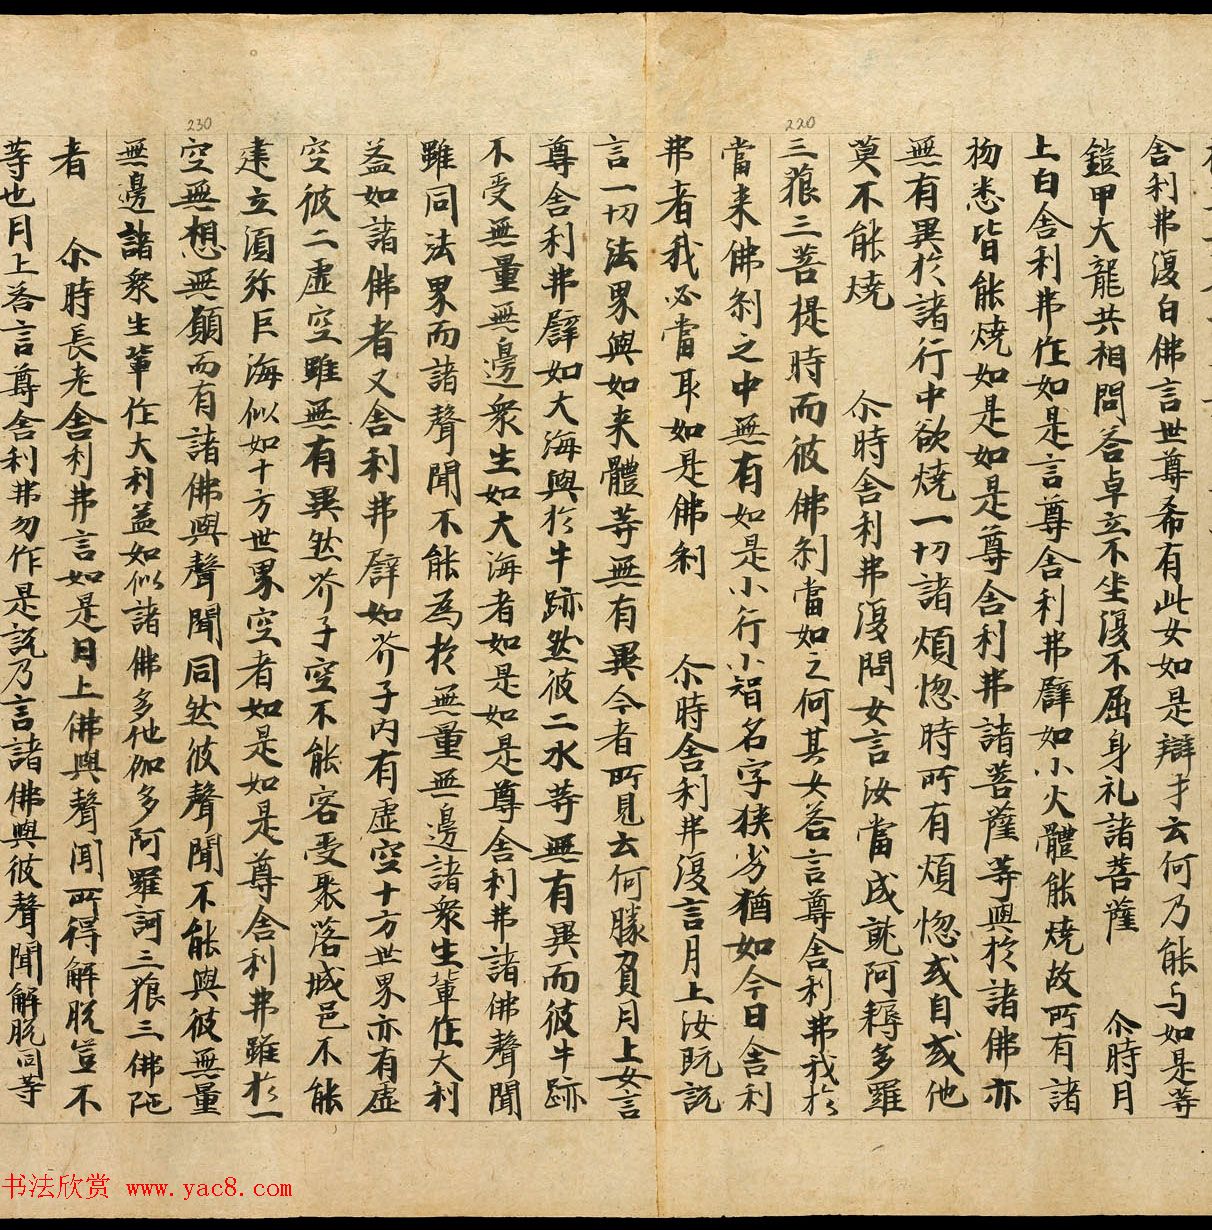 舍利弗復白佛言世尊希有此女如是辯才云何乃能与如是等
鎧甲大龍共相問荅卓立不坐復不屈身礼諸菩薩 尒時月
上白舍利弗作如是言尊舍利弗譬如小火體能燒故所有諸
物悉皆能燒如是如是尊舍利弗諸菩薩等與於諸佛亦
無有異於諸行中欲燒一切諸煩惚時所有煩惚或自或他
莫不能燒 尒時舍利弗復問女言汝當成就阿耨多羅
三藐三菩提時而彼佛刹當如之何其女荅言尊舍利弗我於
當来佛刹之中無有如是小行小智名字狹劣猶如今日舍利
弗者我必當取如是佛刹 尒時舍利弗復言月上汝既説
言一切法界與如来體等無有異今者所見云何勝負月上女言
尊舍利弗譬如大海與於牛跡然彼二水等無有異而彼牛跡
不受無量無邊衆生如大海者如是如是尊舍利弗諸佛聲聞
雖同法界而諸聲聞不能為於無量無邊諸衆生輩作大利
益如諸佛者又舍利弗譬如芥子内有虚空十方世界亦有虚
空彼二虚空雖無有異然芥子空不能容受聚落城邑不能
建立湏弥巨海似如十方世界空者如是如是尊舍利弗雖於一
空無想無願而有諸佛與聲聞同然彼聲聞不能與彼無量
無邊諸衆生輩作大利益如似諸佛多他伽多阿羅訶三藐三佛陁
者 尒時長老舍利弗言如是月上佛與聲聞所得解脱豈不
等也月上荅言尊舍利弗勿作是説乃言諸佛與彼聲聞解脱同等
220
230
书法欣赏 www.yac8.com